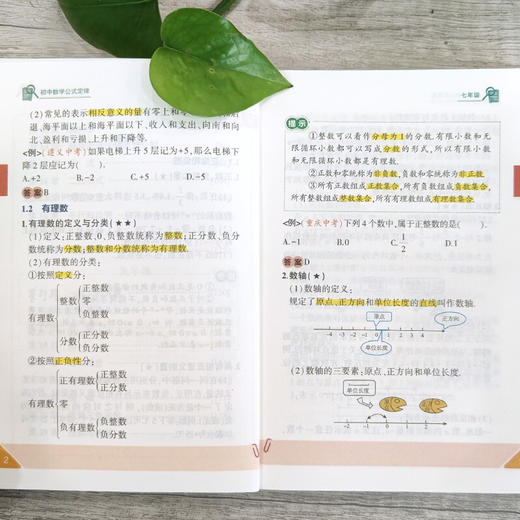 初中数学公式定律
(2)常见的表示相反意义的量有零上和零
退、海平面以上和海平面以下、收入和支出、向南和向
北、盈利和亏损、上升和下降等.
<例>(遵义中考)如果电梯上升5层记为+5,那么电梯下
降2层应记为( ).
A.+2 B.-2 C.+5 D.-5
答案B
1.2 有理数
1.有理数的定义与分类(★★)
(1)定义:正整数、0、负整数统称为整数;正分数、负分
数统称为分数;整数和分数统称为有理数.
(2)有理数的分类:
①按照定义分:
有理数
整数
正整数
零
负整数
分数
正分数
负分数
②按照正负性分:
有理数
正有理数
正整数
正分数
零
负有理数
负整数
负分数
2
七年级
提示
①整数可以看作分母为1的分数,有限小数和无
限循环小数都可以写成分数的形式,所以有限小数
和无限循环小数都是有理数.
②正数和零统称为非负数,负数和零统称为非正数.
③所有正数组成正数集合,所有负数组成负数集合,
所有整数组成整数集合,所有有理数组成有理数集合.
<例>(重庆中考)下列4个数中,属于正整数的是( ).
A.-1 B.0 C.1/2 D.1
答案D
2.数轴(★)
(1)数轴的定义:
规定了原点、正方向和单位长度的直线叫作数轴.
原点
正方向
-4 -3 -2 -1 0 1 2 3 4
单位长度
(2)数轴的三要素:原点、正方向和单位长度.
单位长度
-2 -1 0 1 2